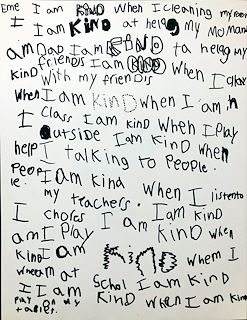 Eme I am KiND When I cleaning my room
I I am KiND at helpg my Mom
am Dad I am KIND ta helpg my
friends I am KIND when I
KiND with my friends
When I am KIND when I am in
I Class I am KinD When I Play
outside I am KinD when
help I talking to People.
Peop le. I am Kind When I listento
my teachers.
I chores I am KinD
am I Play I am KinD when
KinD I am KIND When I
am at Schol I am KinD
I I am KinD when I am Kind
Play on my
tables.